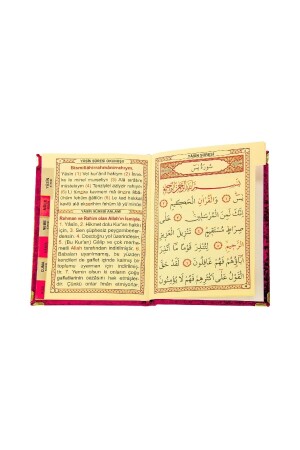 YASİN SÛRESİ OKUNUŞU
Bismillâhirrahmânirrahîym.
Yâsin (1) Vel kur'ânil hakîm (2) İnne-
ke le minel murselîyn (3) Alâ sırâtın
müstekîym (4) Tenzîylel azîyzir rahîym
(5) Li tünzira kavmem mâ ünzira âbâ-
ühüm fehüm gâfilûn (6) Le kad hakkal
kavlü alâ ekserihim fehüm lâ yü'minûn
YASİN SÛRESİ ANLAMI
Rahman ve Rahim olan Allah'ın ismiyle,
1. Yâsin. 2. Hikmet dolu Kur'an hakkı
için. 3. Sen şüphesiz peygamberler-
densin. 4. Dosdoğru yol üzerindesin.
5. (Bu Kur'an) Galip ve çok merha-
metli Allah tarafından indirilmiştir. 6.
Babaları uyarılmamış, bu yüzden
kendileri de gaflet içinde kalmış
toplumu uyarman için indirilmiş-
tir. 7. Yemin olsun ki onların çoğu
gafletlerinin cezasını hak etmişler-
dir. Çünkü onlar iman etmiyorlar.
YASİN SÛRESİ
سُورَةُ يٰسٓ
بِسْمِ اللّٰهِ الرَّحْمٰنِ الرَّحِيمِ
يٰسٓ وَالْقُرْاٰنِ الْحَكِيمِ
اِنَّكَ لَمِنَ الْمُرْسَلِينَ عَلٰى صِرَاطٍ
مُسْتَقِيمٍ تَنْزِيلَ الْعَزِيزِ
الرَّحِيمِ لِتُنْذِرَ قَوْمًا مَٓا اُنْذِرَ
اٰبَٓاؤُهُمْ فَهُمْ غَافِلُونَ لَقَدْ حَقَّ
الْقَوْلُ عَلٰٓى اَكْثَرِهِمْ فَهُمْ لَا يُؤْمِنُونَ